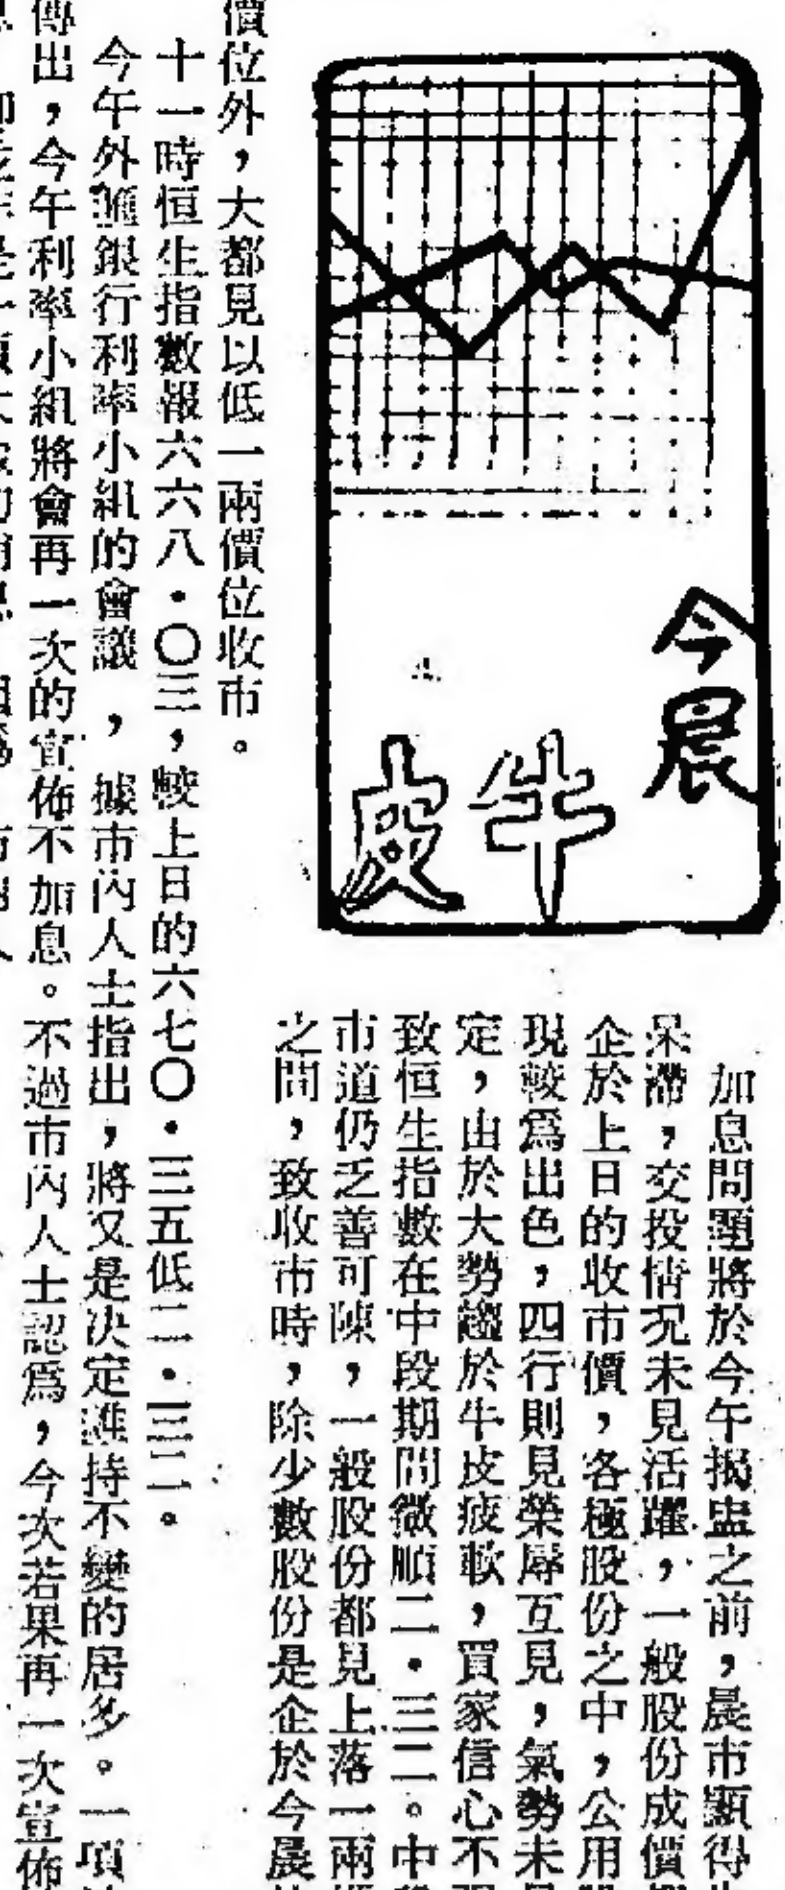 今晨
牛皮
加息問題將於今午揭盅之前，晨市顯得
呆滯，交投情況未見活躍，一般股份成價
企於上日的收市價，各極股份之中，公用
現較爲出色，四行則見榮辱互見，氣勢未
定，由於大勢趨於牛皮疲軟，買家信心不
致恒生指數在中段期間微順二·三二。中
市道仍乏善可陳，一般股份都見上落一兩
之間，致收市時，除少數股份是企於今晨
價位外，大都見以低一兩價位收市。
十一時恒生指數報六六八·〇三，較上日的六七〇·三五低二·三二。
今午外滙銀行利率小組的會議，據市內人士指出，將又是決定維持不變的居多。一項
傳出，今午利率小組將會再一次的宣佈不加息。不過市內人士認爲，今次若果再一次宣佈